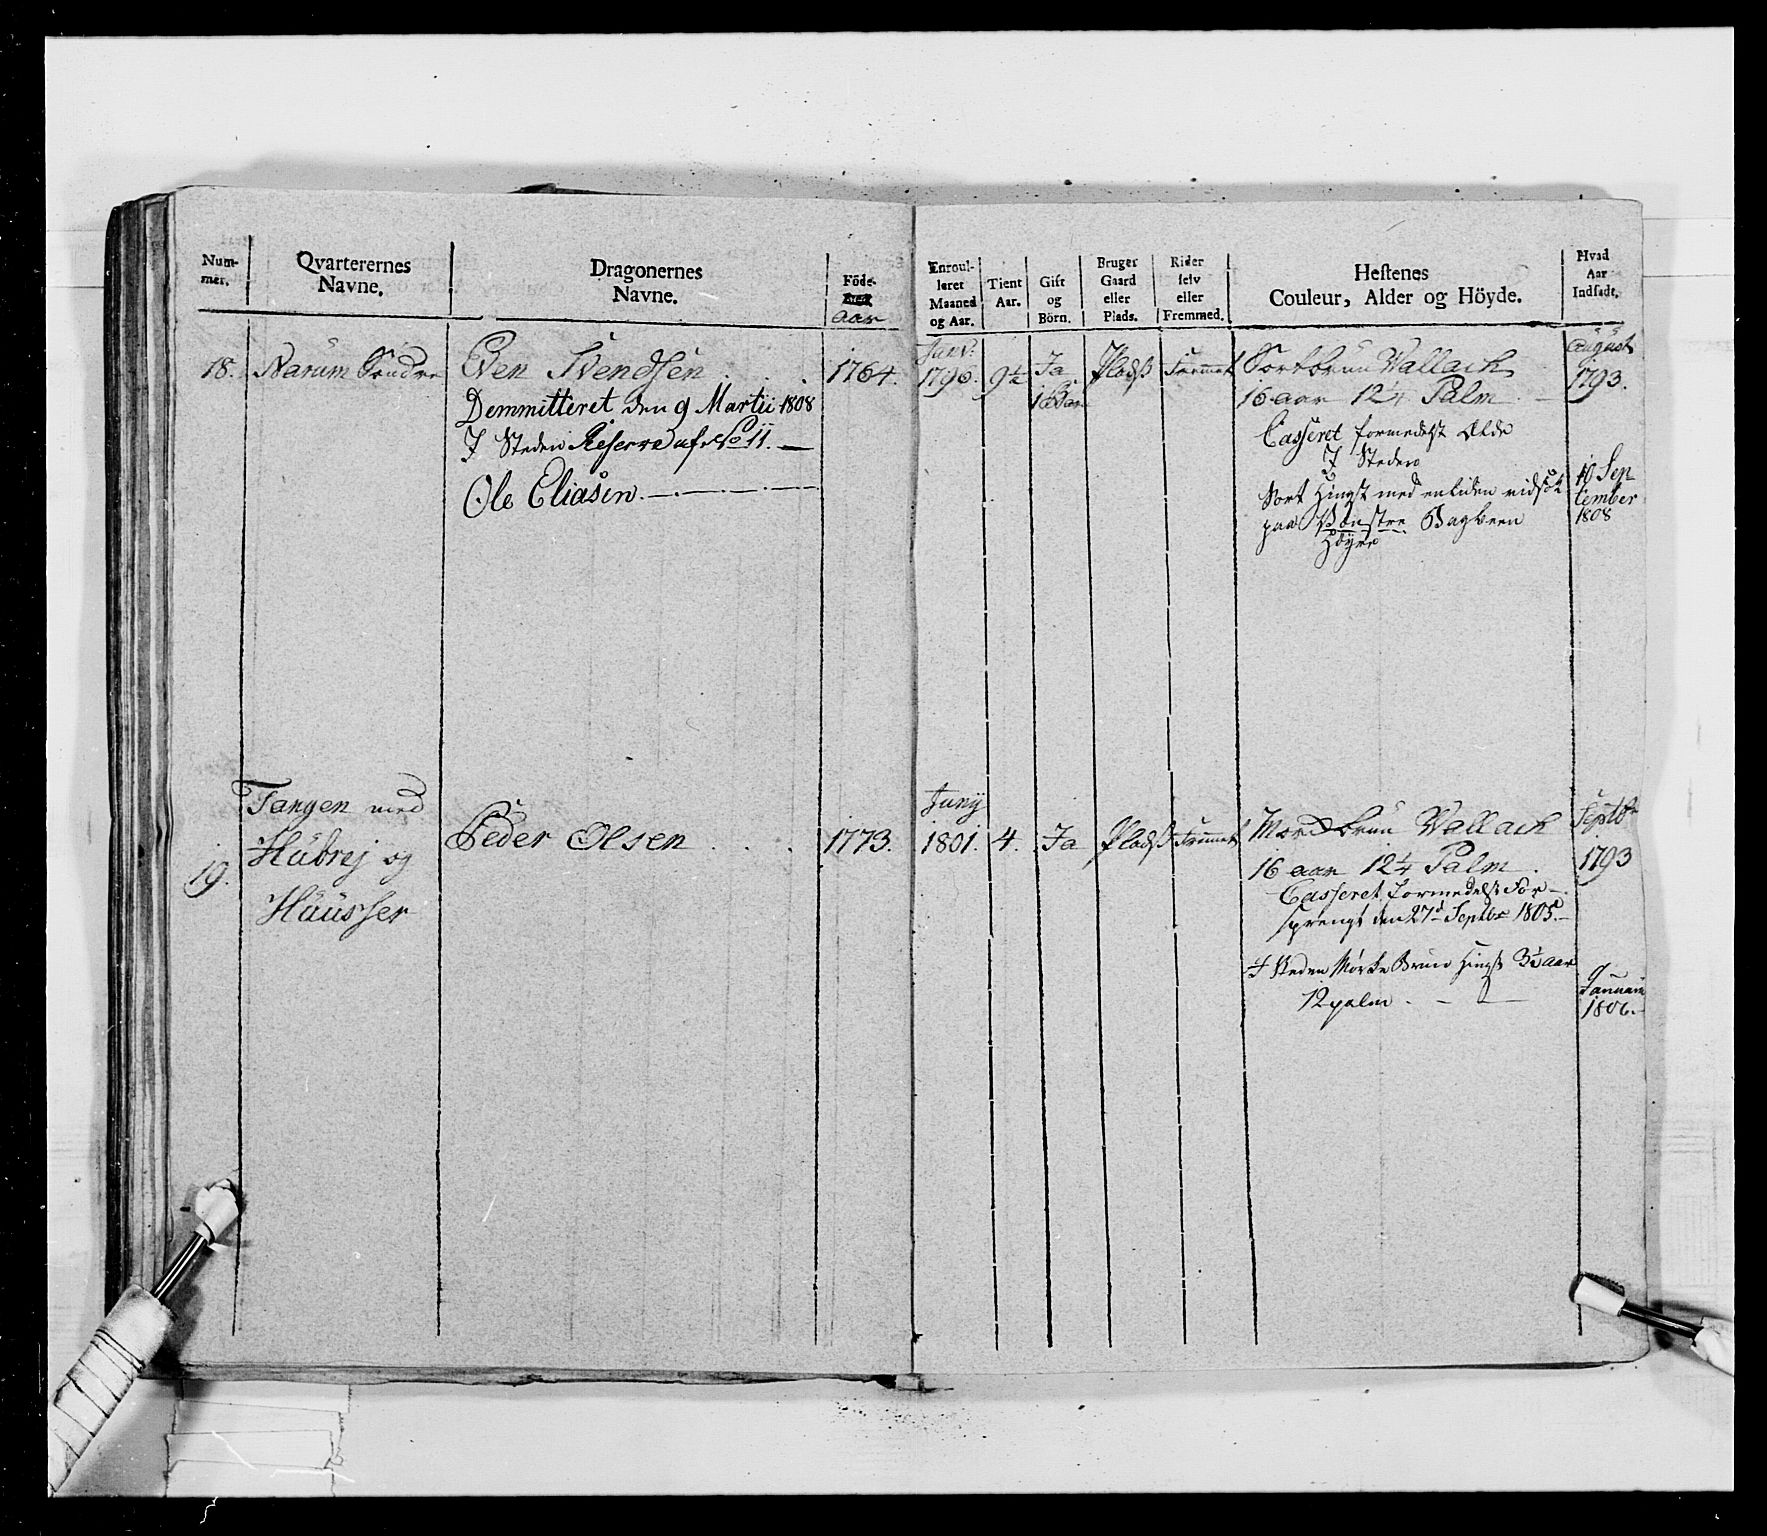 Num-
mer.
Qvarterernes
Navne.
Dragonernes
Navne.
Föde-
Aar
Enroul-
leret
Maaned
og Aar.
Tient
Aar.
Gift
og
Börn.
Bruger
Gaard
eller
Plads.
Rider
selv
eller
Fremmed.
Hestenes
Couleur, Alder og Höyde.
Hvad
Aar
Indsadt.
18. Narum Söndre
Even Svendsen . . .
1764.
Demmitteret den 9 Martii 1808
I Steden Reserve af No 11. —
Ole Eliasen
Junv:
1796.
9½
Ja
1 Barn
Pladß
Fremmet
Sortbrun Wallach
16 aar 12¼ Palm
Casseret formedelst Ælde
I Steden
Sort Hingst med en liden
paa Venstre Bagbeen
Höyre
August
1793.
10 Sep-
tember
1808
19.
Tangen med
Hübrej og
Hüusser
Peder Olsen . . .
1773.
Juny
1801.
4.
Ja
Pladß
Fremmet
Mord brun Wallach
16 aar 12¼ Palm .
Casseret formedelst For-
sprengt den 27d Septbr 1805.
I steden Mørke Brun Hingst 3½ aar
12 palm . —
Septbr
1793
9
Januarii
1806.